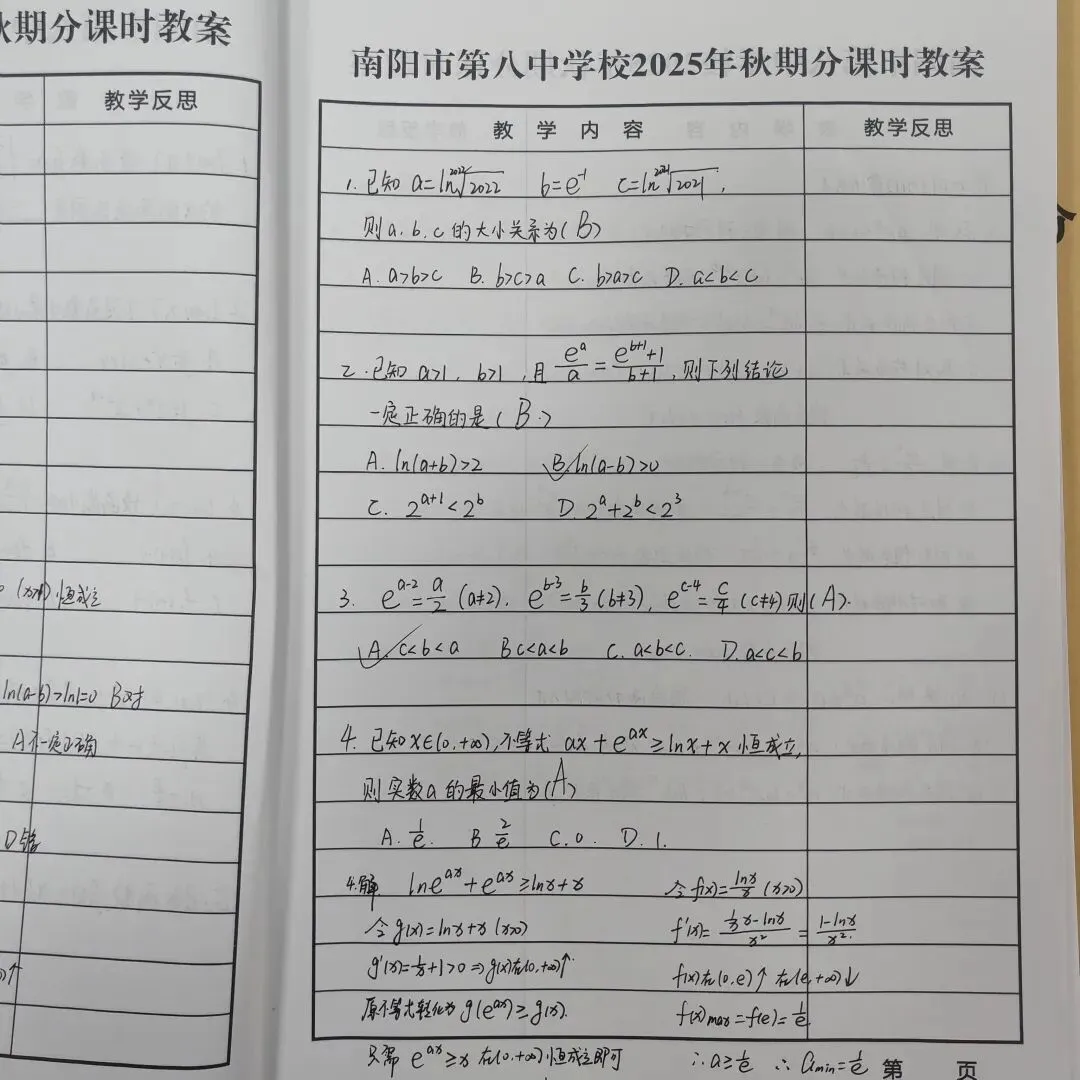 秋期分课时教案
教学反思
(x>1)恒成立
ln(a-b)>ln1=0 B对
A不一定正确
D错
↑
南阳市第八中学校2025年秋期分课时教案
教 学 内 容 教学反思
1. 已知 a=ln²⁰²²√2022 b=e⁻¹ c=ln²⁰²¹√2021,
则a、b、c的大小关系为(B)
A. a>b>c B. b>c>a C. b>a>c D. a<b<c
2. 已知 a>1, b>1, 且 e^a/a = (e^(b+1)+1)/(b+1), 则下列结论
一定正确的是(B.)
A. ln(a+b)>2 B. ln(a-b)>0
C. 2^(a+1)<2^b D. 2^a+2^b<2^3
3. e^(a-2)=a/2 (a≠2). e^(b-3)=b/3 (b≠3), e^(c-4)=c/4 (c≠4) 则(A).
A. c<b<a B c<a<b C. a<b<c. D. a<c<b
4. 已知x∈(0,+∞),不等式 ax+e^(ax)≥lnx+x 恒成立,
则实数a的最小值为(A)
A. 1/e. B 2/e C. 0. D. 1.
4.解 lne^(ax)+e^(ax)≥lnx+x 令f(x)=lnx/x (x>0)
令g(x)=lnx+x (x>0) f'(x)=(1/x·x-lnx)/x²=(1-lnx)/x².
g'(x)=1/x+1>0⇒g(x)在(0,+∞)↑ f(x)在(0,e)↑ 在(e,+∞)↓
原不等式转化为g(e^(ax))≥g(x). f(x)max=f(e)=1/e
只需 e^(ax)≥x 在(0,+∞)恒成立即可 ∴a≥1/e ∴amin=1/e
第 页